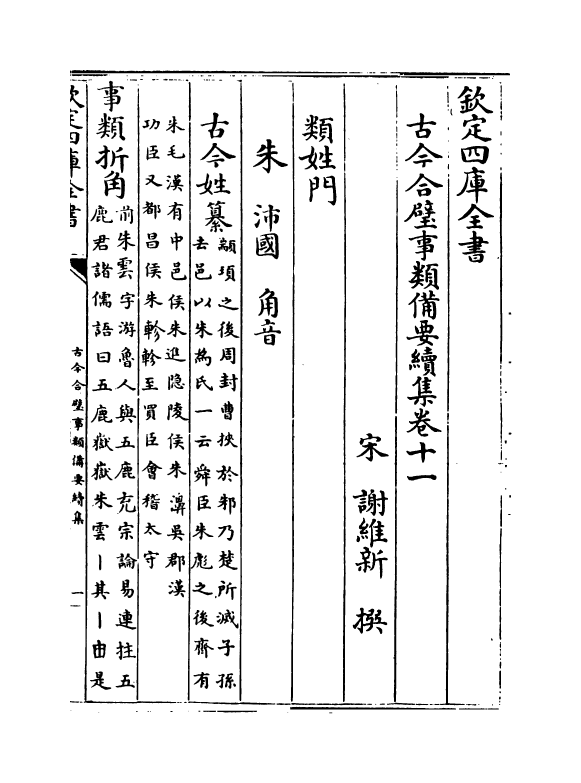 欽定四庫全書
古今合璧事類備要續集卷十一
宋 謝維新 撰
類姓門
朱 沛國 角音
古今姓纂
顓頊之後周封曹挾於邾乃楚所滅子孫
去邑以朱為氏一云舜臣朱彪之後齊有
朱毛漢有中邑侯朱進隐陵侯朱濞吳郡漢
功臣又都昌侯朱軫軫至買臣會稽太守
事類折角
前朱雲字游魯人與五鹿充宗論易連拄五
鹿君諸儒語曰五鹿嶽嶽朱雲丨其丨由是
欽定四庫全書
古今合璧事類備要續集
一